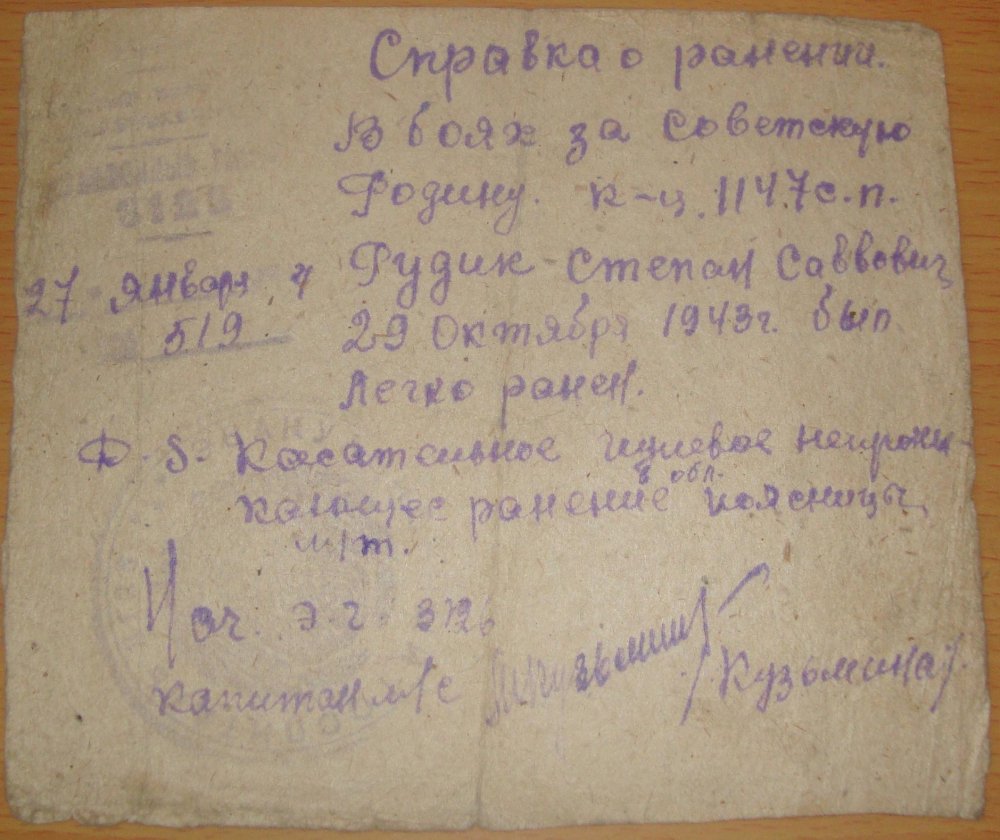 Справка о ранении.
В боях за Советскую
Родину. к-ц. 1147 с.п.
Рудик Степан Саввович
29 Октября 1943г. был
легко ранен.
3126
27 Январ 4
519
Ф. S. Касательное пулевое непрони-
кающее ранение в обл. поясницы
м/т.
Нач. э.г. 3126
капитан м/с /Кузьмина/.